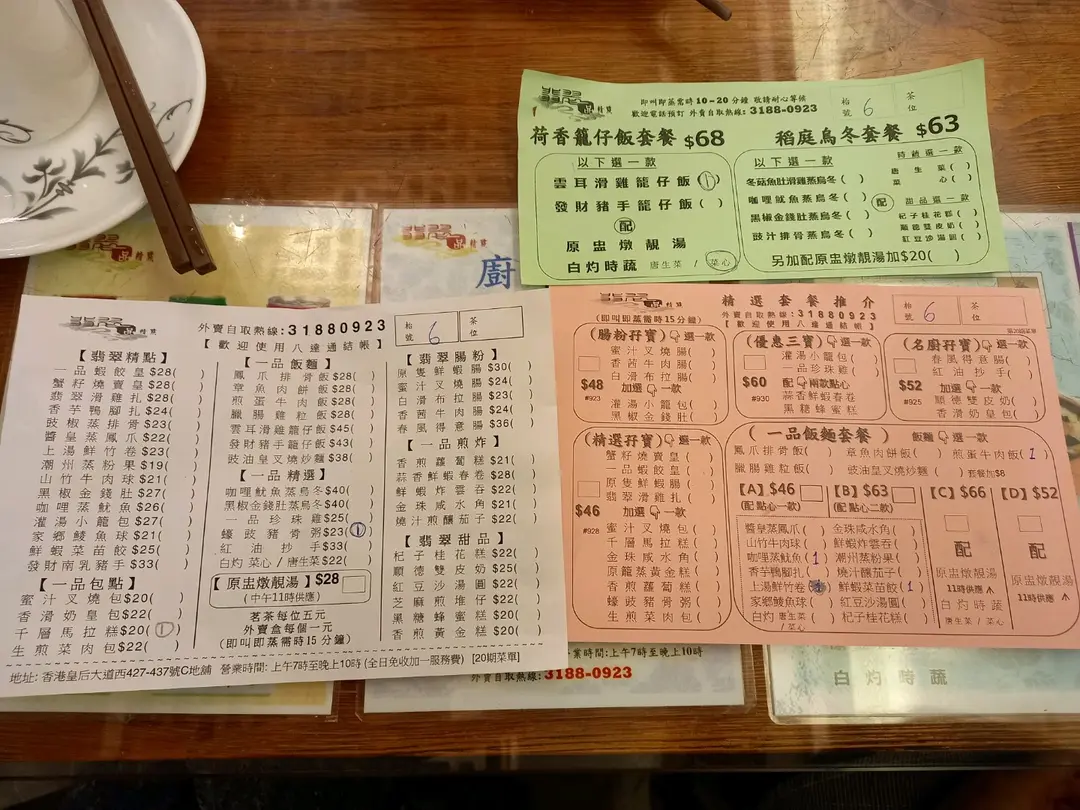 外賣自取熱線:31880923
【歡迎使用八達通結帳】
枱號 6
茶位
【翡翠精點】
一品蝦餃皇$28( )
蟹籽燒賣皇$28( )
翡翠滑雞扎$28( )
香芋鴨腳扎$24( )
豉椒蒸排骨$23( )
醬皇蒸鳳爪$22( )
上湯鮮竹卷$23( )
潮州蒸粉果$19( )
山竹牛肉球$21( )
黑椒金錢肚$27( )
咖哩蒸魷魚$26( )
灌湯小龍包$27( )
家鄉鯪魚球$21( )
鮮蝦菜苗餃$25( )
發財南乳豬手$33( )
【一品包點】
蜜汁叉燒包$20( )
香滑奶皇包$22( )
千層馬拉糕$20(1)
生煎菜肉包$22( )
【一品飯麵】
鳳爪排骨飯$28( )
章魚肉餅飯$28( )
煎蛋牛肉飯$28( )
臘腸雞粒飯$28( )
雲耳滑雞籠仔飯$45( )
發財豬手籠仔飯$43( )
豉油皇叉燒炒麵$38( )
【一品精選】
咖哩魷魚蒸烏冬$40( )
黑椒金錢肚蒸烏冬$40( )
一品珍珠雞$25( )
蠔豉豬骨粥$23(1)
紅油抄手$33( )
白灼菜心/唐生菜$22( )
【原盅燉靚湯】$28
(中午11時供應)
茗茶每位五元
外賣盒每個一元
(即叫即蒸需時15分鐘)
【翡翠腸粉】
原隻鮮蝦腸$30( )
蜜汁叉燒腸$24( )
白滑布拉腸$23( )
香茜牛肉腸$24( )
春風得意腸$36( )
【一品煎炸】
香煎蘿蔔糕$21( )
蒜香鮮蝦春卷$28( )
鮮蝦炸雲吞$22( )
金珠咸水角$21( )
燒汁煎釀茄子$22( )
【翡翠甜品】
杞子桂花糕$22( )
順德雙皮奶$25( )
紅豆沙湯圓$22( )
芝麻煎堆仔$22( )
黑糖蜂蜜糕$20( )
香煎黃金糕$20( )
地址: 香港皇后大道西427-437號C地舖 營業時間: 上午7時至晚上10時 (全日免收加一服務費) [20期菜單]
即叫即蒸需時10-20分鐘 敬請耐心等候
歡迎電話預訂 外賣自取熱線: 3188-0923
枱號 6
茶位
荷香籠仔飯套餐 $68
以下選一款
雲耳滑雞籠仔飯(1)
發財豬手籠仔飯( )
配
原盅燉靚湯
白灼時蔬 唐生菜 / 菜心
稻庭烏冬套餐 $63
以下選一款
冬菇魚肚滑雞蒸烏冬( )
咖哩魷魚蒸烏冬( )
黑椒金錢肚蒸烏冬( )
豉汁排骨蒸烏冬( )
配
時蔬選一款
唐生菜( )
菜心( )
甜品選一款
杞子桂花糕( )
順德雙皮奶( )
紅豆沙湯圓( )
另加配原盅燉靚湯加$20( )
精選套餐推介
(即叫即蒸需時15分鐘)
外賣自取熱線:31880923
【歡迎使用八達通結帳】
枱號 6
茶位
(腸粉孖寶) 選一款
蜜汁叉燒腸( )
香茜牛肉腸( )
白滑布拉腸( )
$48
#923
加選 一款
灌湯小龍包( )
黑椒金錢肚( )
(優惠三寶)
灌湯小龍包
一品珍珠雞
$60
#930
配 兩款點心
蒜香鮮蝦春卷
黑糖蜂蜜糕
(名廚孖寶) 選一款
春風得意腸( )
紅油抄手( )
$52
#925
加選 一款
順德雙皮奶( )
香滑奶皇包( )
(精選孖寶) 選一款
蟹籽燒賣皇( )
一品蝦餃皇( )
原隻鮮蝦腸( )
翡翠滑雞扎( )
$46
#928
加選 一款
蜜汁叉燒包( )
千層馬拉糕( )
金珠咸水角( )
原籠蒸黃金糕( )
香煎蘿蔔糕( )
蠔豉豬骨粥( )
生煎菜肉包( )
(一品飯麵套餐) 飯麵 選一款
鳳爪排骨飯( ) 章魚肉餅飯( ) 煎蛋牛肉飯(1)
臘腸雞粒飯( ) 豉油皇叉燒炒麵( ) 套餐加$8
【A】$46
(配點心一款)
【B】$63
(配點心二款)
【C】$66
【D】$52
醬皇蒸鳳爪( ) 金珠咸水角( )
山竹牛肉球( ) 鮮蝦炸雲吞( )
咖哩蒸魷魚(1) 潮州蒸粉果( )
香芋鴨腳扎( ) 燒汁釀茄子( )
上湯鮮竹卷( ) 鮮蝦菜苗餃(1)
家鄉鯪魚球( ) 紅豆沙湯圓( )
白灼 唐生菜/菜心( ) 杞子桂花糕( )
配
原盅燉靚湯
11時供應
白灼時蔬
唐生菜 / 菜心
配
原盅燉靚湯
11時供應
廚
營業時間:上午7時至晚上10時
外賣自取熱線:3188-0923
白灼時蔬